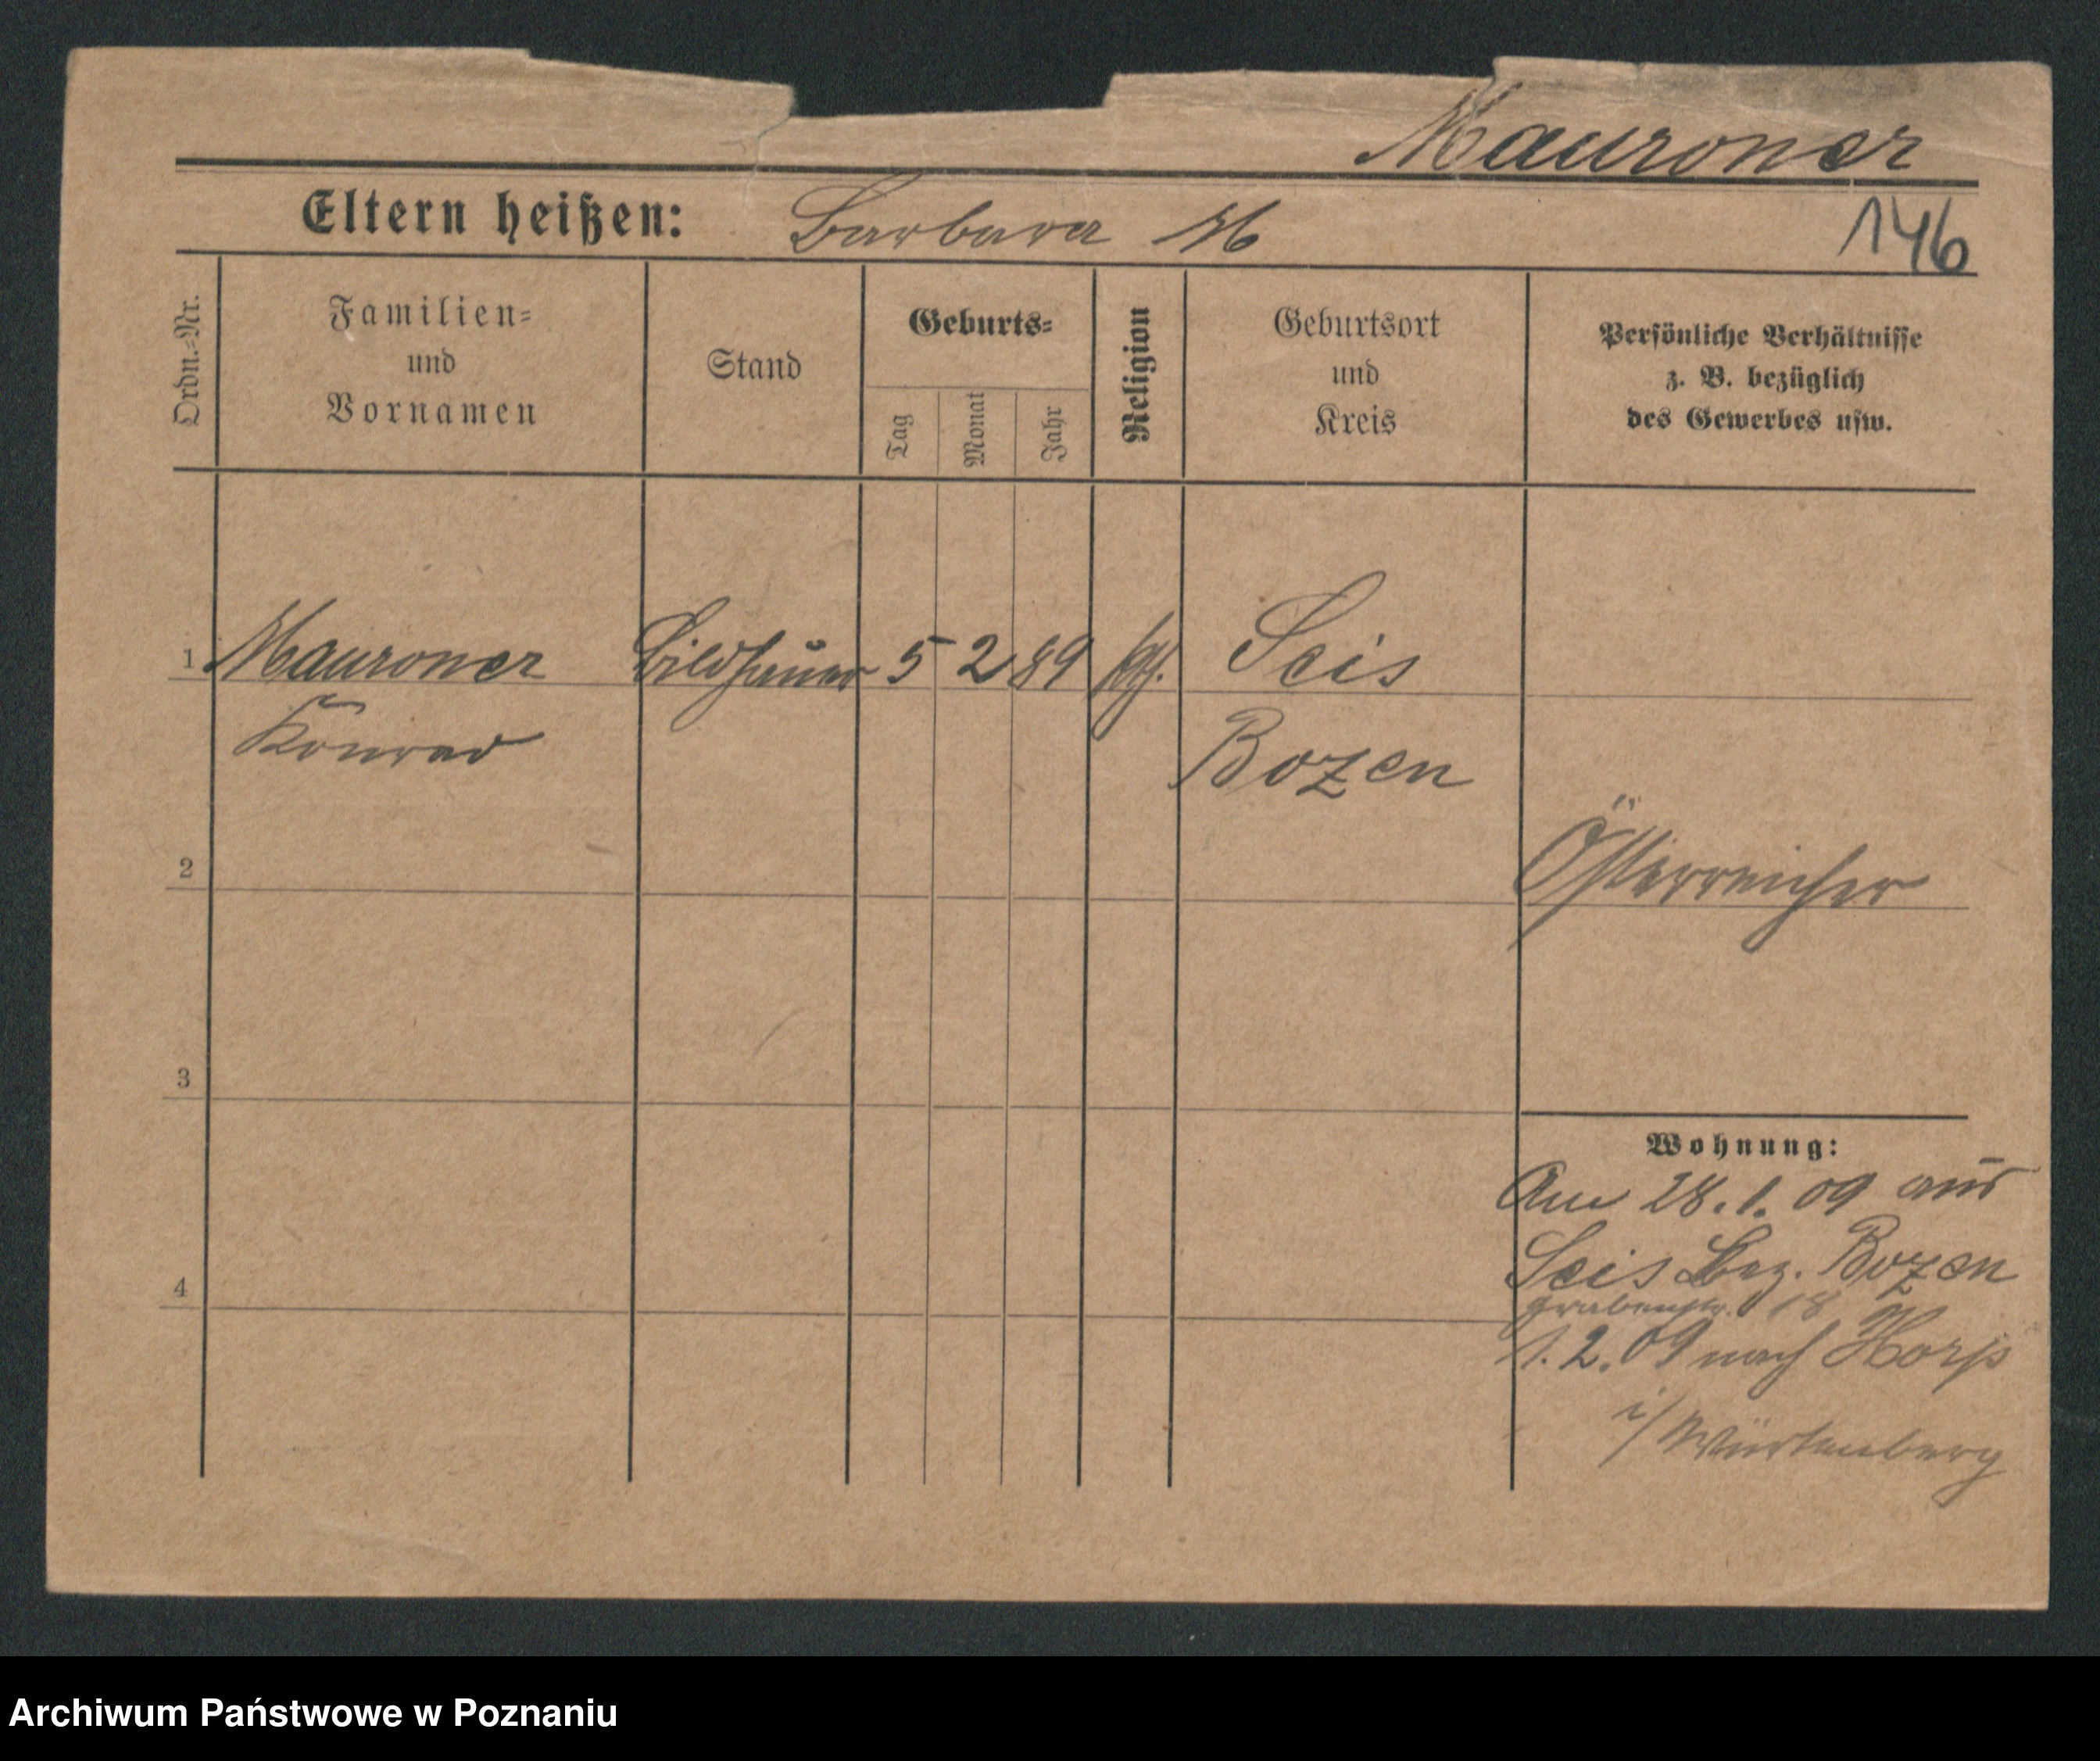 Mauroner
Eltern heißen: Barbara M
146
Ordn.=Nr.
Familien=
und
Vornamen
Stand
Geburts=
Tag
Monat
Jahr
Religion
Geburtsort
und
Kreis
Persönliche Verhältnisse
z. B. bezüglich
des Gewerbes usw.
1 Mauroner Bildhauer 5 2 89 kth. Seis
Konrad Bozen
2 Österreicher
3
Wohnung:
Am 28.1.09 aus
Seis Bez. Bozen
4
Grabenstr. 18
1.2.09 nach
i/ Würtemberg
Archiwum Państwowe w Poznaniu